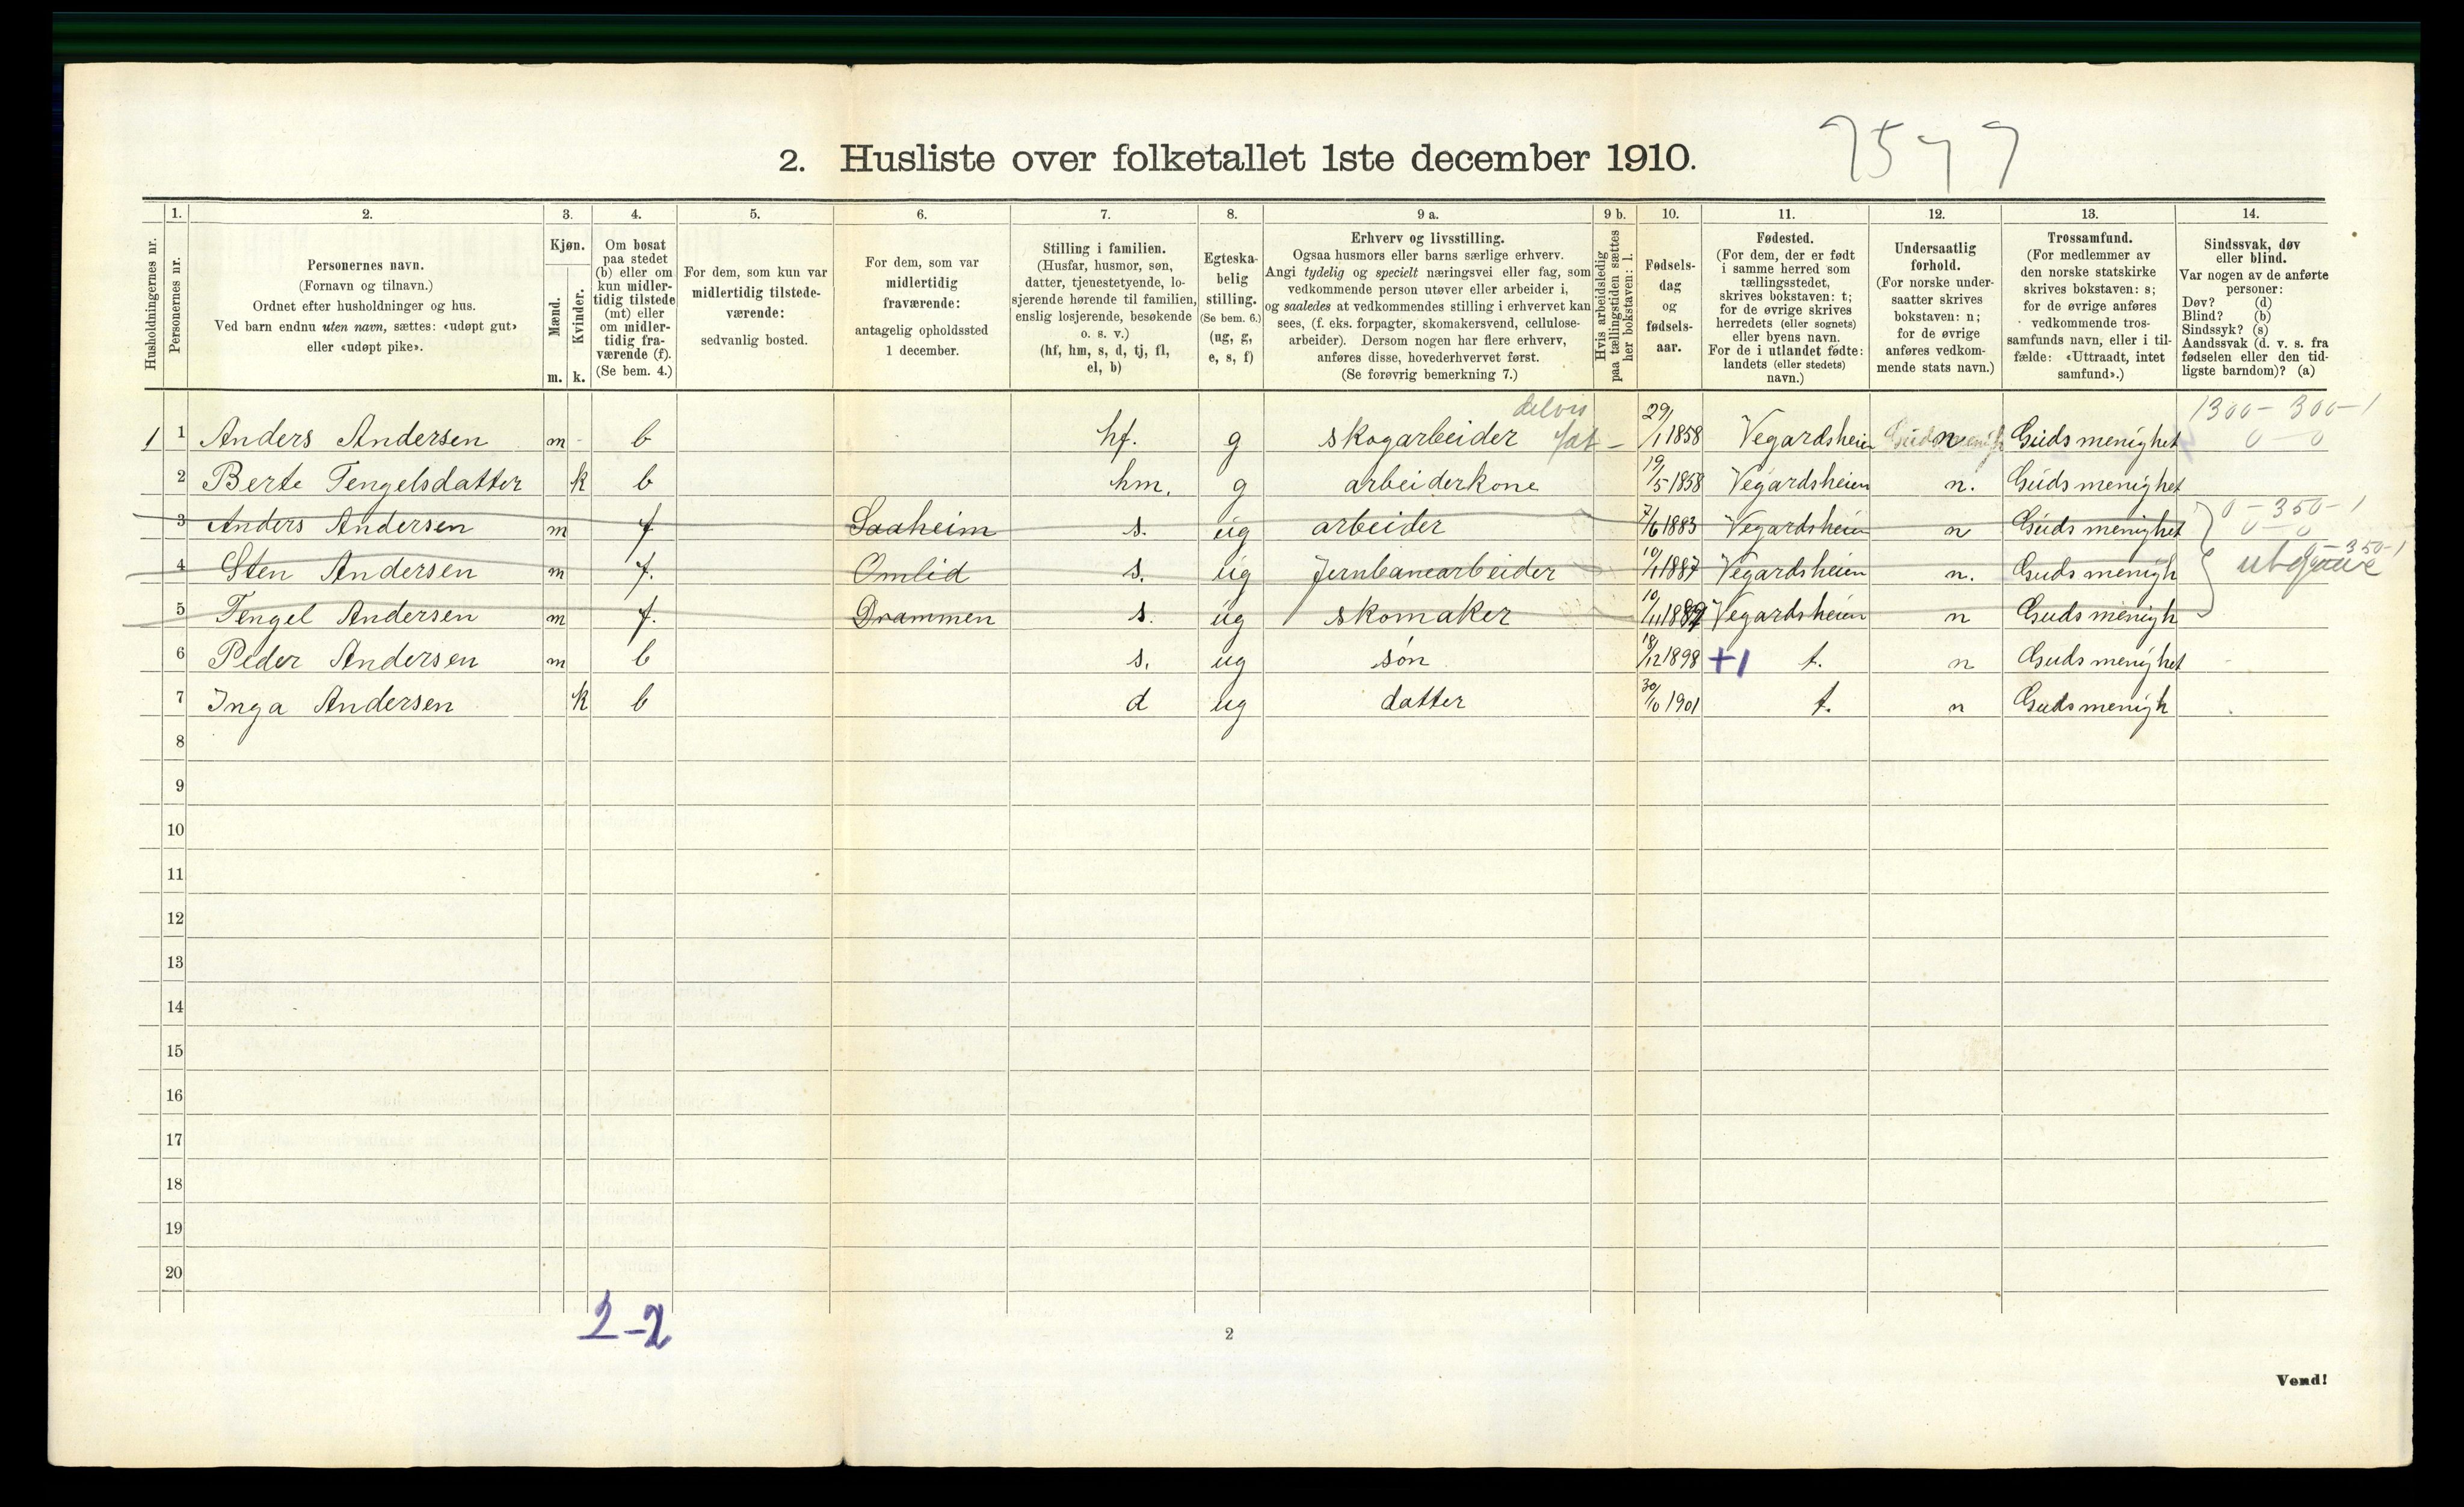 2. Husliste over folketallet 1ste december 1910.
7577
1. 2. 3. 4. 5. 6. 7. 8. 9 a. 9 b. 10. 11. 12. 13. 14.
Husholdningernes nr.
Personernes nr.
Personernes navn.
(Fornavn og tilnavn.)
Ordnet efter husholdninger og hus.
Ved barn endnu uten navn, sættes: «udøpt gut»
eller «udøpt pike».
Kjøn.
Mænd.
Kvinder.
m. k.
Om bosat
paa stedet
(b) eller om
kun midler-
tidig tilstede
(mt) eller
om midler-
tidig fra-
værende (f).
(Se bem. 4.)
For dem, som kun var
midlertidig tilstede-
værende:
sedvanlig bosted.
For dem, som var
midlertidig
fraværende:
antagelig opholdssted
1 december.
Stilling i familien.
(Husfar, husmor, søn,
datter, tjenestetyende, lo-
sjerende hørende til familien,
enslig losjerende, besøkende
o. s. v.)
(hf, hm, s, d, tj, fl,
el, b)
Egteska-
belig
stilling.
(Se bem. 6.)
(ug, g,
e, s, f)
Erhverv og livsstilling.
Ogsaa husmors eller barns særlige erhverv.
Angi tydelig og specielt næringsvei eller fag, som
vedkommende person utøver eller arbeider i,
og saaledes at vedkommendes stilling i erhvervet kan
sees, (f. eks. forpagter, skomakersvend, cellulose-
arbeider). Dersom nogen har flere erhverv,
anføres disse, hovederhvervet først.
(Se forøvrig bemerkning 7.)
Hvis arbeidsledig
paa tællingstiden sættes
her bokstaven: l.
Fødsels-
dag
og
fødsels-
aar.
Fødested.
(For dem, der er født
i samme herred som
tællingsstedet,
skrives bokstaven: t;
for de øvrige skrives
herredets (eller sognets)
eller byens navn.
For de i utlandet fødte:
landets (eller stedets)
navn.)
Undersaatlig
forhold.
(For norske under-
saatter skrives
bokstaven: n;
for de øvrige
anføres vedkom-
mende stats navn.)
Trossamfund.
(For medlemmer av
den norske statskirke
skrives bokstaven: s;
for de øvrige anføres
vedkommende tros-
samfunds navn, eller i til-
fælde: «Uttraadt, intet
samfund».)
Sindssvak, døv
eller blind.
Var nogen av de anførte
personer:
Døv? (d)
Blind? (b)
Sindssyk? (s)
Aandssvak (d. v. s. fra
fødselen eller den tid-
ligste barndom)? (a)
delvis 1300-300-1
1 1 Anders Andersen m - b hf. g skogarbeider 29/1 1858 Vegardsheien n Guds menighet 0 - 0
2 Berte Tengelsdatter k b hm. g arbeiderkone 19/5 1858 Vegardsheien n. Guds menighet
3 Anders Andersen m f Saaheim s. ug arbeider 7/6 1883 Vegardsheien n Guds menighet 0-350-1
0 - 0
4 Sten Andersen m f. Omlid s. ug Jernbanearbeider 10/1 1887 Vegardsheien n. Guds menigh 350-1
5 Tengel Andersen m f. Drammen s. ug skomaker 10/11 1889 Vegardsheien n Guds menigh
6 Peder Andersen m b s. ug søn 18/12 1898 +1 t. n Guds menighet
7 Inga Andersen k b d ug datter 30/10 1901 t. n Guds menigh
8
9
10
11
12
13
14
15
16
17
18
19
20
2-2
2
Vend!